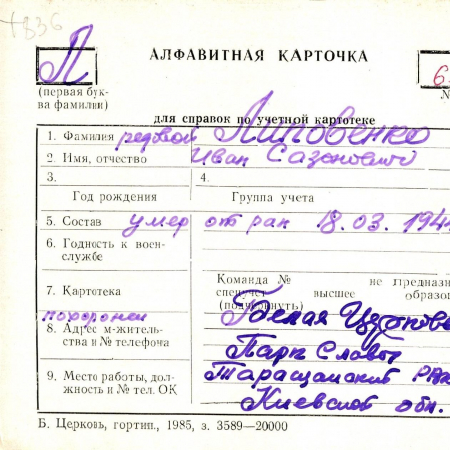 +836
Л
АЛФАВИТНАЯ КАРТОЧКА
6
(первая бук-
ва фамилии)
№
для справок по учетной картотеке
1. Фамилия рядовой Липовенко
2. Имя, отчество Иван Сазонович
3. 4.
Год рождения Группа учета
5. Состав умер от ран 18.03.194
6. Годность к воен-
службе
Команда № не предназн
7. Картотека спецучет высшее образо
(подчеркнуть)
похоронен Белая Церковь
8. Адрес м-житель-
ства и № телефона Парк Славы
9. Место работы, дол- Таращанский
жность и № тел. ОК Киевской обл.
Б. Церковь, гортип., 1985, з. 3589—20000